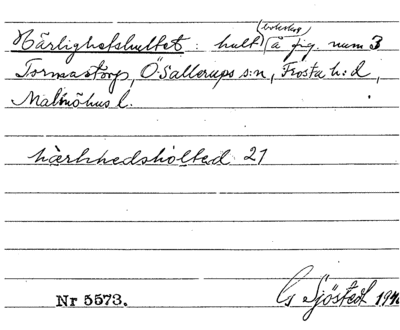 (bokskog)
Härlighetshultet : hult å fig. num 3
Tormastorp, Ö Sallerups s:n, Frosta h:d,
Malmöhus l.
härlihedshólted 21
Nr 5573.
Gs Sjöstedt 1940